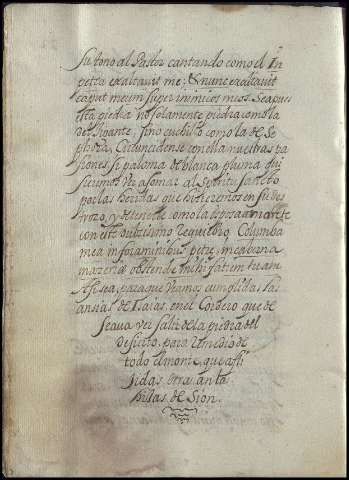 su tono al Pastor cantando como el In
petra exaltauit me: & nunc exaltauit
caput meum super inimicos meos. Sea pues
esta piedra no solamente piedra como la
del sino cuchillo como la de Se
phora, Circuncidense con ella nuestras pa
siones, si paloma de blanca pluma qui
sieremos ver asomar al Spiritu sancto
por las heridas que hizieremos en su des
trozo, y detenerle como la esposa amante
con este dulcissimo requiebro, Columba
mea in foraminibus petre, in cauerna
mazeriæ ostende mihi fatiem tuam
Assi sea, para que veamos cumplidas las
ansias de Isaias, en el Cordero que de
seaua ver salir de la piedra del
desierto, para remedio de
todo el monte, que affli
gidas, otra tanta
hijas de Sion.